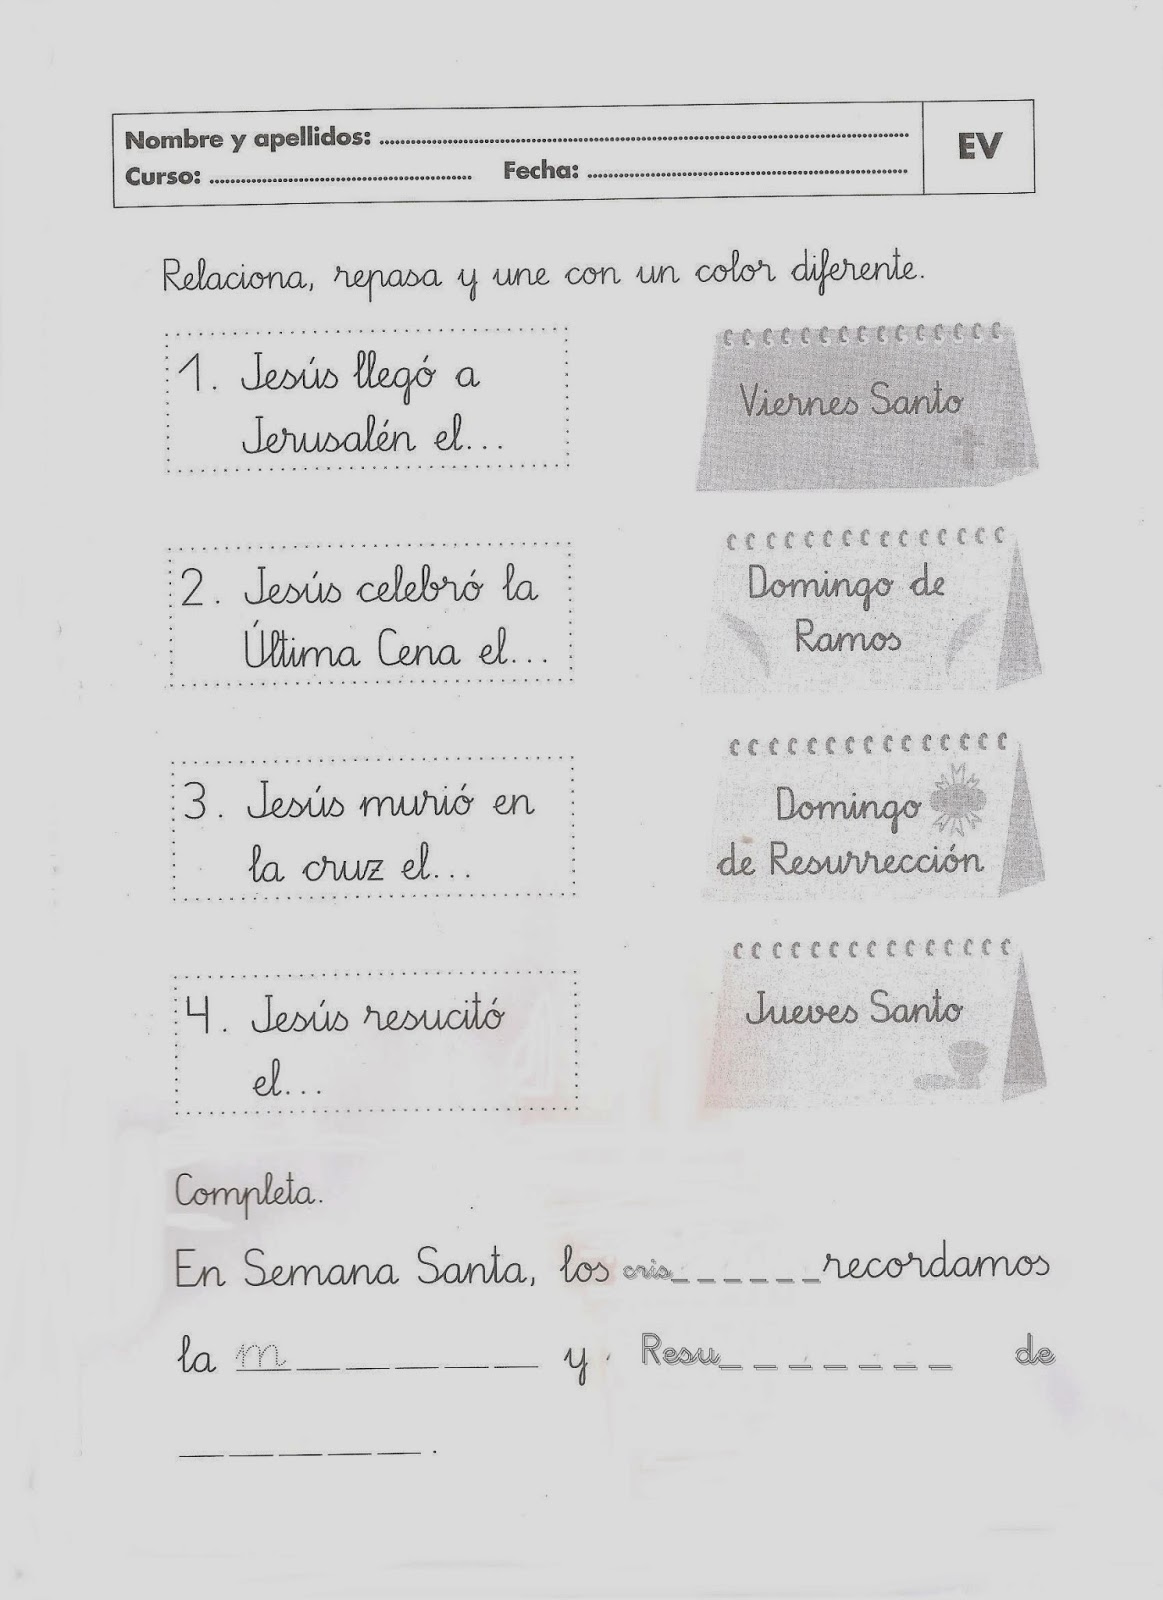 Nombre y apellidos: ........................................ EV
Curso: .................... Fecha: ....................
Relaciona, repasa y une con un color diferente.
1. Jesús llegó a
Jerusalén el...
Viernes Santo
2. Jesús celebró la
Última Cena el...
Domingo de
Ramos
3. Jesús murió en
la cruz el...
Domingo
de Resurrección
4. Jesús resucitó
el...
Jueves Santo
Completa.
En Semana Santa, los cris_ _ _ _ _ _ recordamos
la m _ _ _ _ _ y Resu_ _ _ _ _ _ _ de
_ _ _ _ _ .